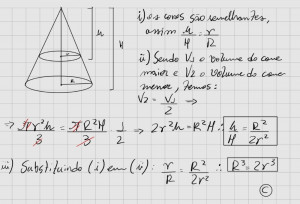 h
H
r
R
i) os cones são semelhantes,
assim h/H = r/R
ii) Sendo V1 o volume do cone
maior e V2 o volume do cone
menor, temos:
V2 = V1/2 ⇒
⇒ πr²h/3 = πR²H/3 · 1/2 ⇒ 2r²h = R²H ∴ h/H = R²/2r²
iii) Substituindo (i) em (ii): r/R = R²/2r² ∴ R³ = 2r³
C